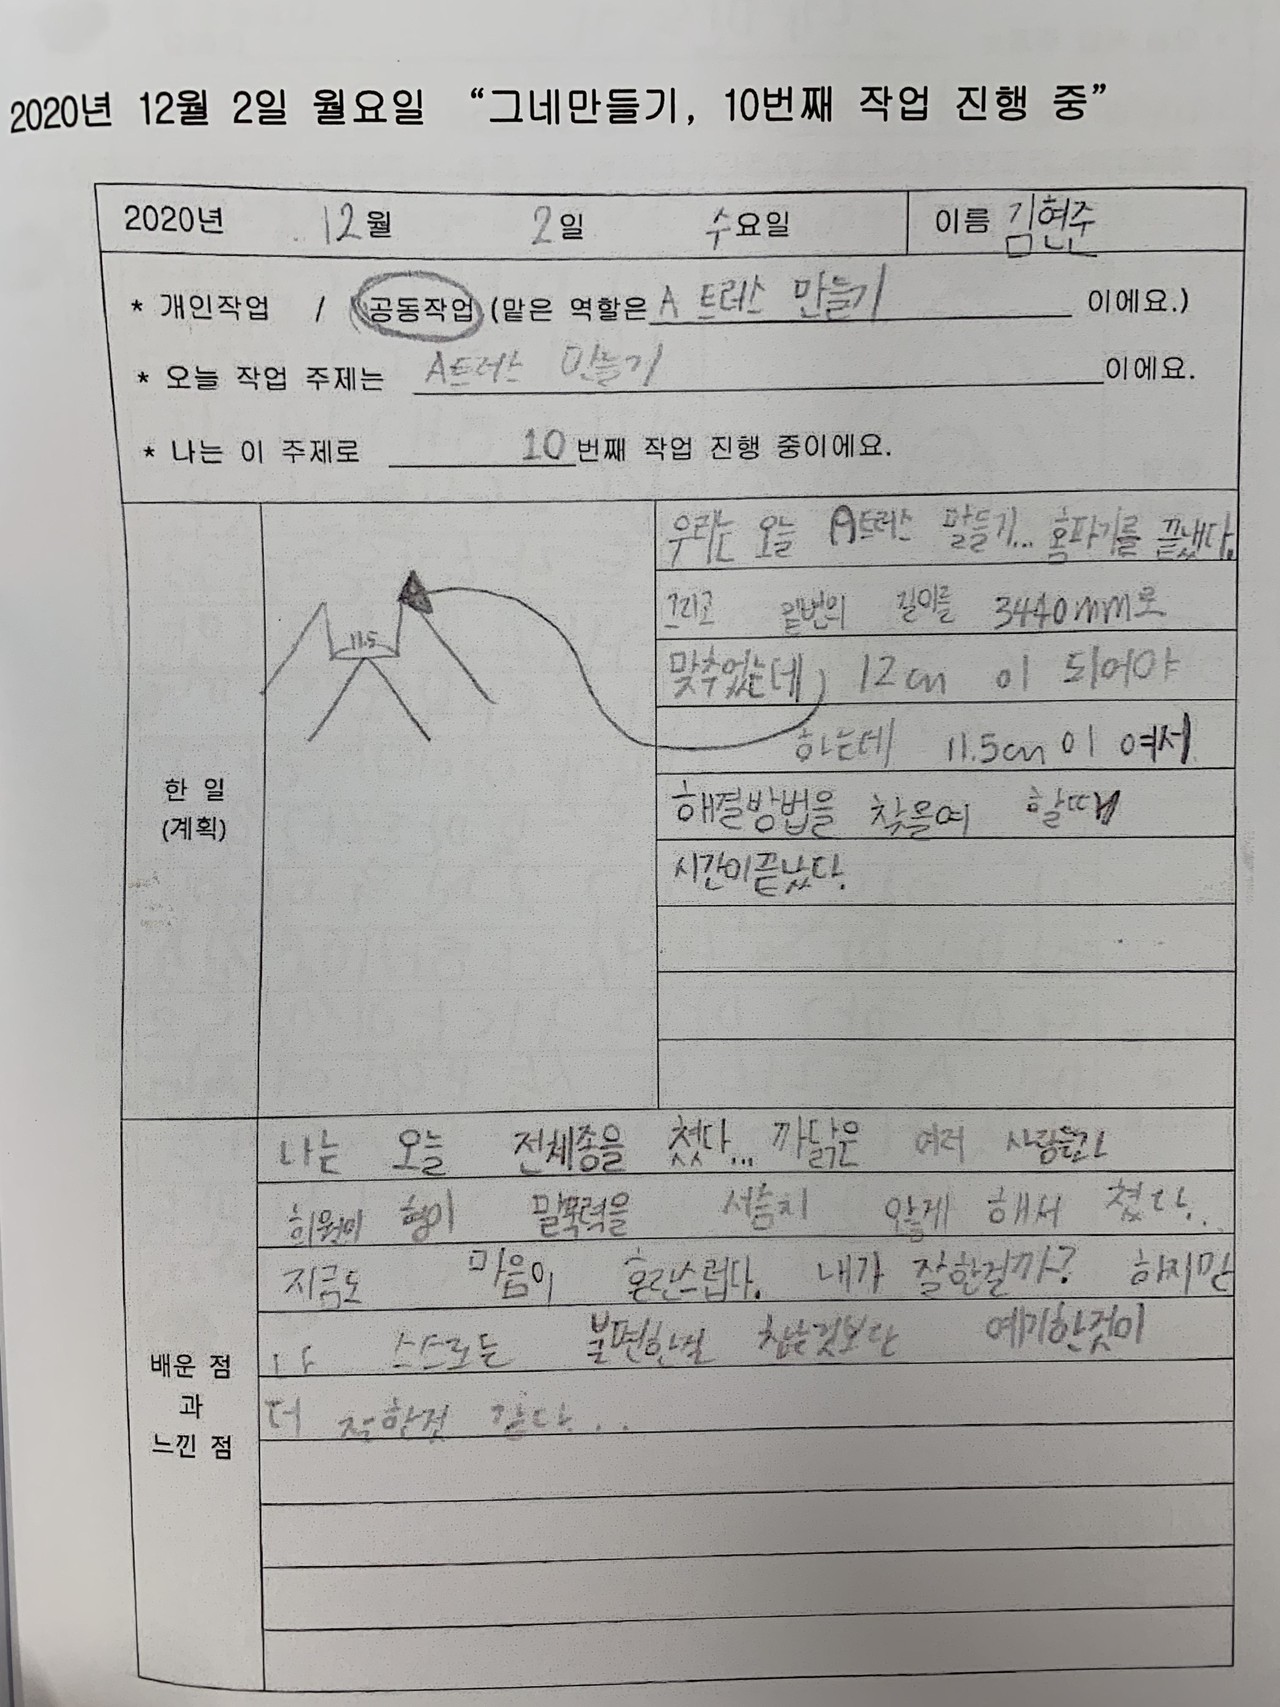 2020년 12월 2일 월요일 “그네만들기, 10번째 작업 진행 중”
2020년 12월 2일 수요일 이름 김현준
* 개인작업 / 공동작업 (맡은 역할은 A 트러스 만들기 이에요.)
* 오늘 작업 주제는 A트러스 만들기 이에요.
* 나는 이 주제로 10 번째 작업 진행 중이에요.
한 일
(계획)
11.5
우리는 오늘 A트러스 만들기... 홈파기를 끝냈다.
그리고 밑변의 길이를 3440mm로
맞추었는데, 12cm 이 되어야
하는데 11.5cm 이 여서
해결방법을 찾을여 할때
시간이끝났다.
배운 점
과
느낀 점
나는 오늘 전체종을 쳤다... 까닭은 여러 사람들과
형이 말폭력을 서슴치 않게 해서 쳤다..
지금도 마음이 혼란스럽다. 내가 잘한걸까? 하지만
나 스스로는 불편한걸 참는것보단 예기한것이
더 잘한것 같다...